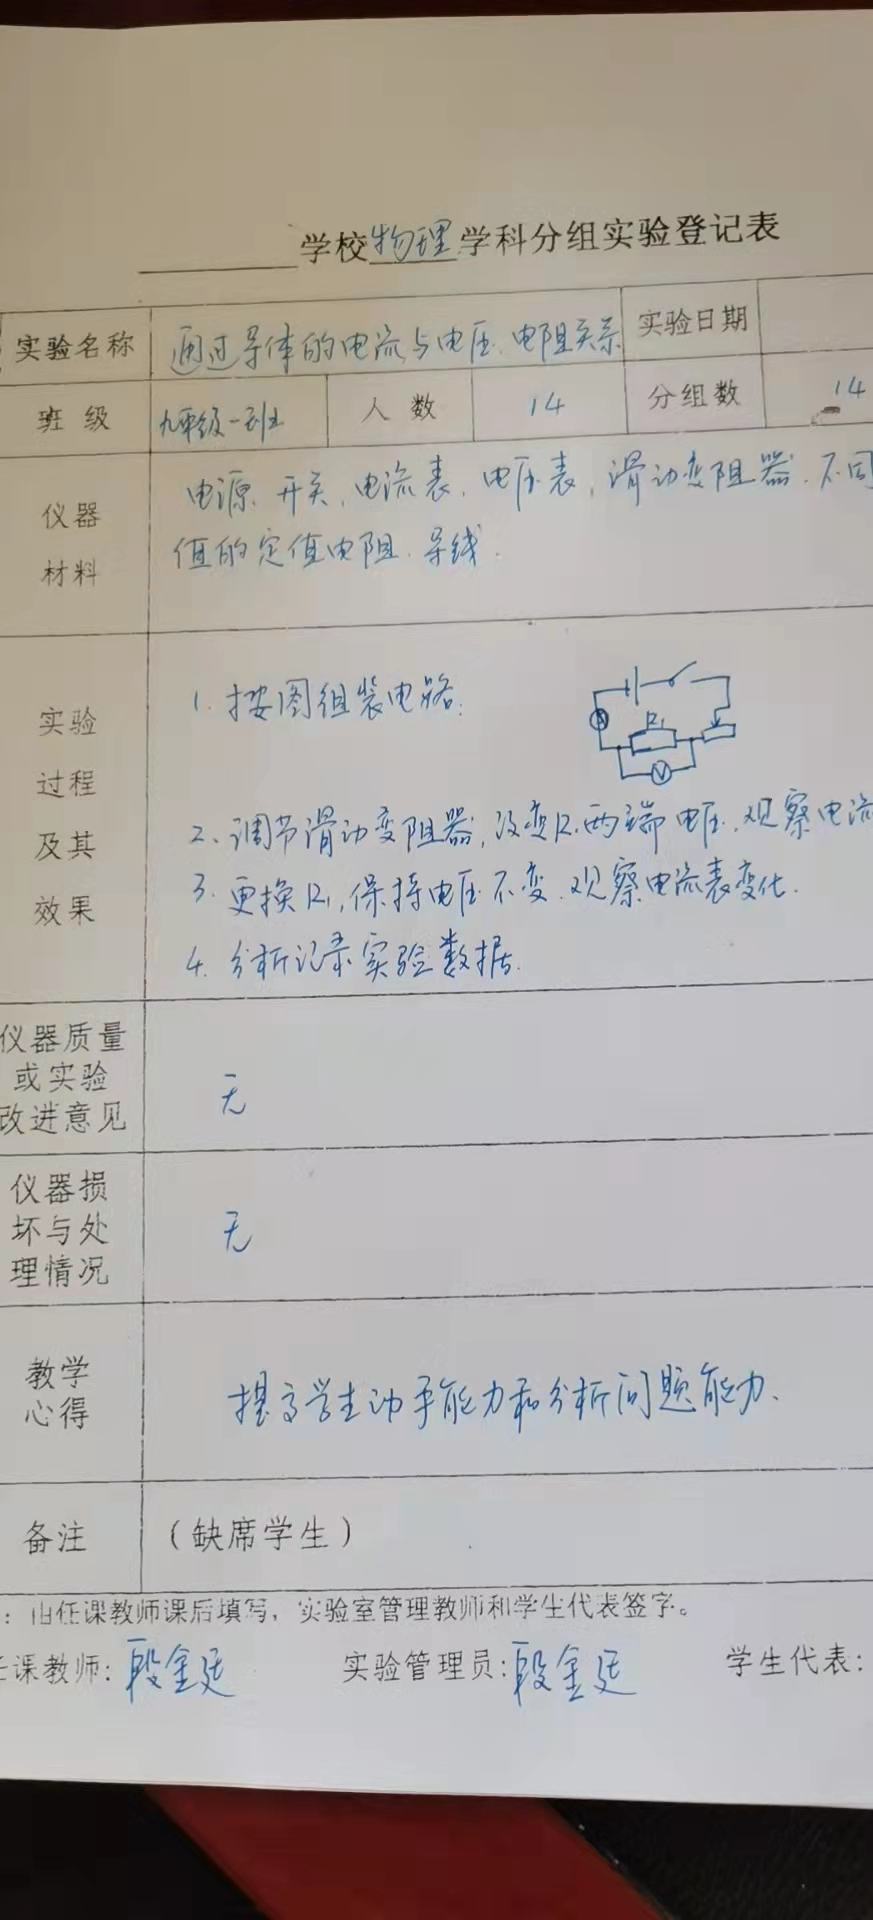 学校物理学科分组实验登记表
实验名称 通过导体的电流与电压、电阻关系 实验日期
班级 九年级一班 人数 14 分组数 14
仪器材料 电源、开关、电流表、电压表、滑动变阻器、不同
值的定值电阻、导线.
实验过程及其效果
1. 按图组装电路:
R1
A
V
2、调节滑动变阻器,改变R1两端电压,观察电流
3. 更换R1,保持电压不变,观察电流表变化.
4. 分析记录实验数据.
仪器质量或实验改进意见 无
仪器损坏与处理情况 无
教学心得 提高学生动手能力和分析问题能力、
备注 (缺席学生)
:由任课教师课后填写,实验室管理教师和学生代表签字。
任课教师:段金廷 实验管理员:段金廷 学生代表: